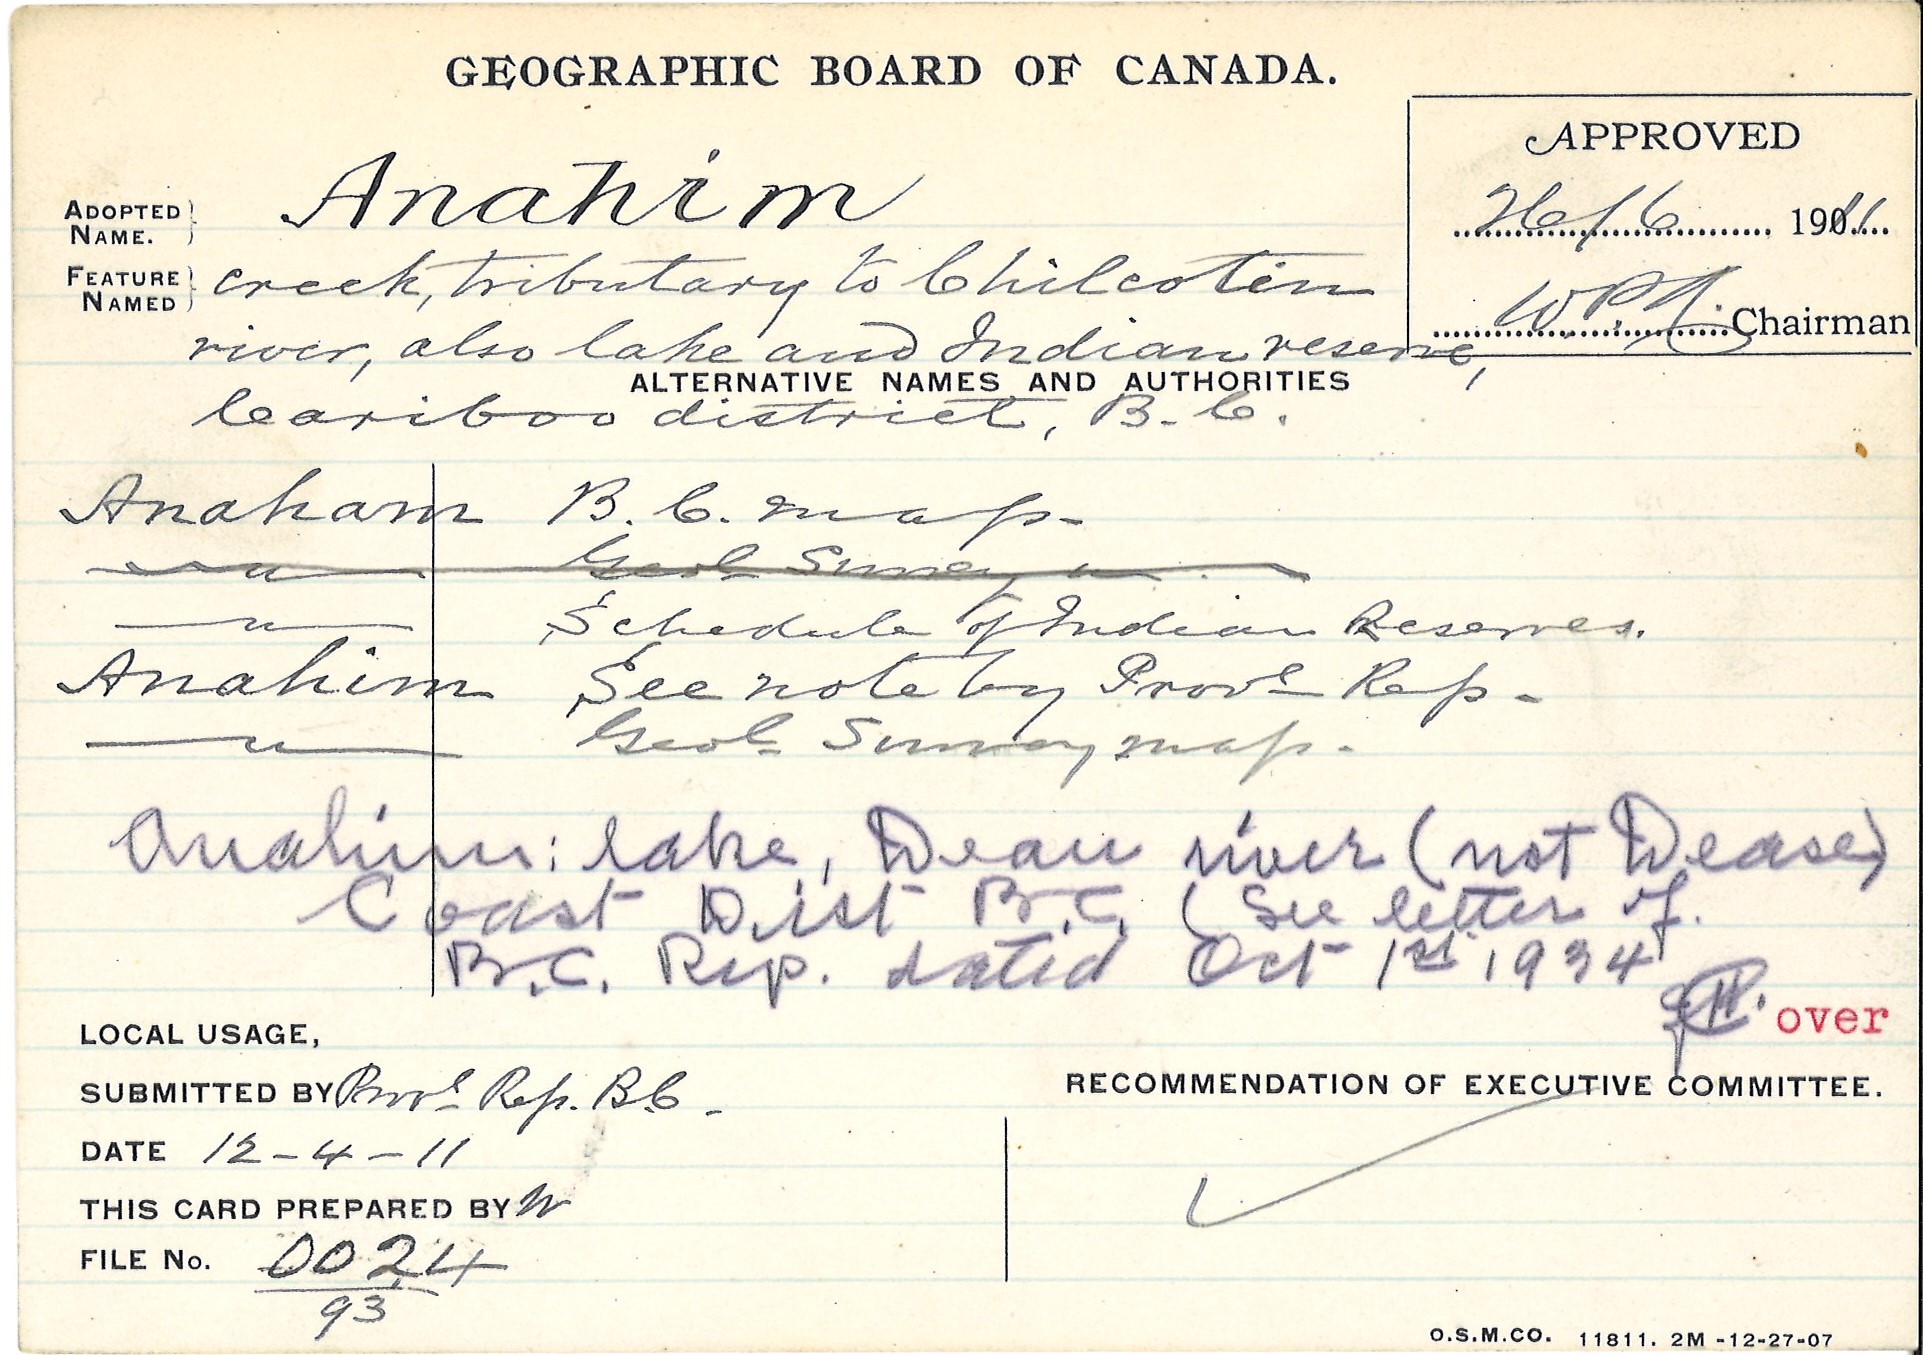 GEOGRAPHIC BOARD OF CANADA.
APPROVED
1911
Chairman
ADOPTED NAME. Anahim
FEATURE NAMED creek, tributary to Chilcotin
river, also lake and Indian reserve,
ALTERNATIVE NAMES AND AUTHORITIES
Cariboo district, B.C.
Anaham B.C. map.
—"— Geol. Survey "
—"— Schedule of Indian Reserves.
Anahim See note by Provl Rep.
—"— Geol. Survey map.
Anahim: lake, Dean river (not Dease)
Coast Dist B.C. (See letter of
B.C. Rep. dated Oct 1st 1934
over
LOCAL USAGE,
SUBMITTED BY Provl Rep. B.C.
RECOMMENDATION OF EXECUTIVE COMMITTEE.
DATE 12-4-11
THIS CARD PREPARED BY W
FILE No. 0024
93
O.S.M.CO. 11811. 2M-12-27-07